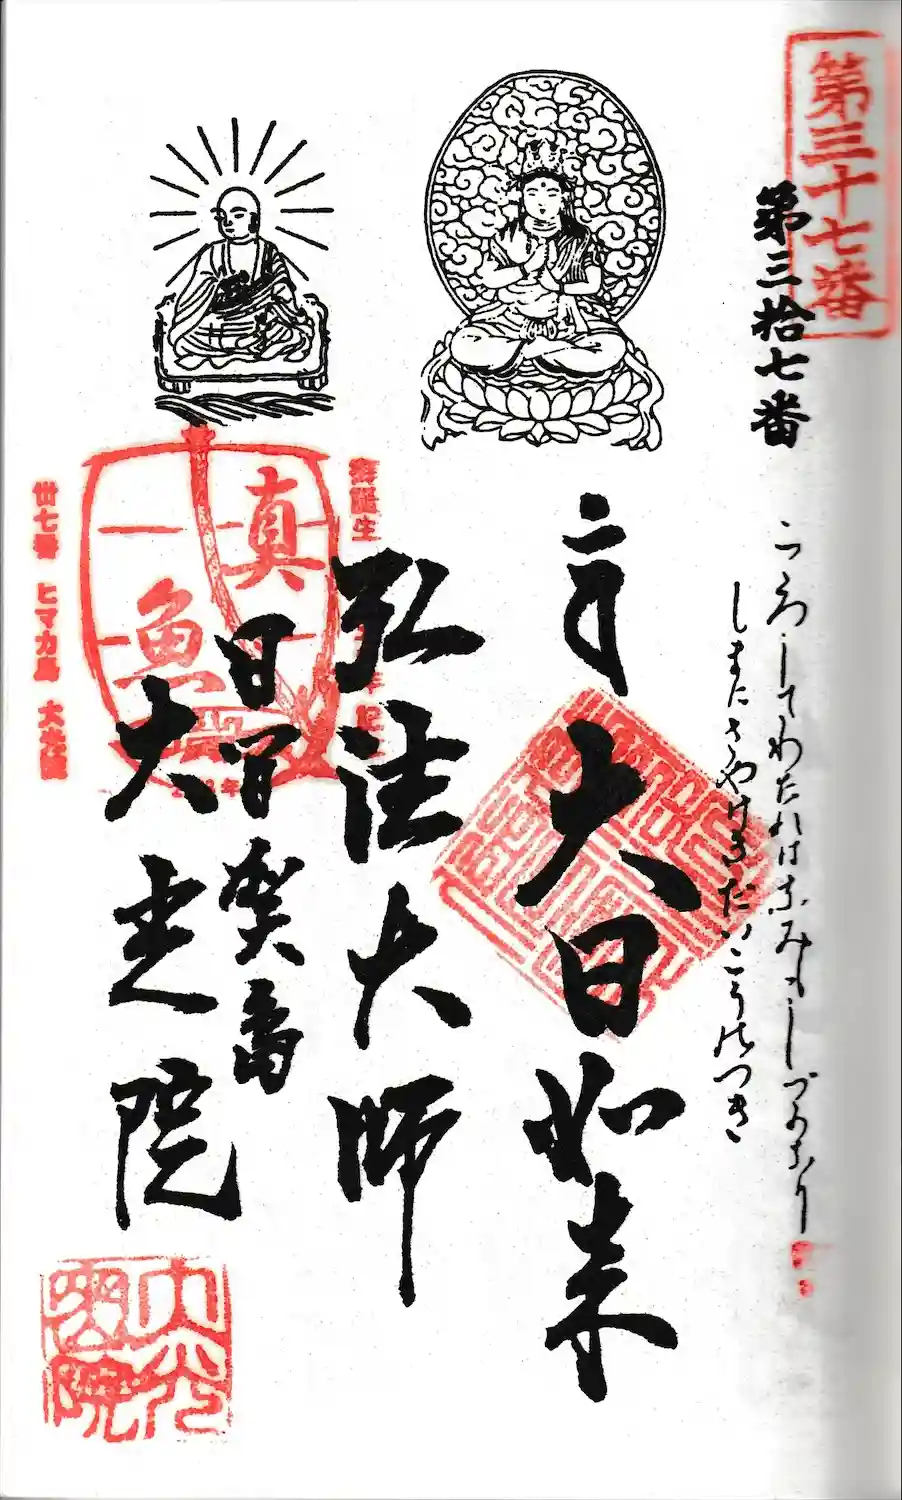 第三十七番
第三拾七番
こころしてわたればうみもしづかなり
しまにさやけきだいこうのつき
奉
大日如来
弘法大師
御誕生
真魚
日間賀島
大光院
卅七番 ヒマカ島 大光院
大光院